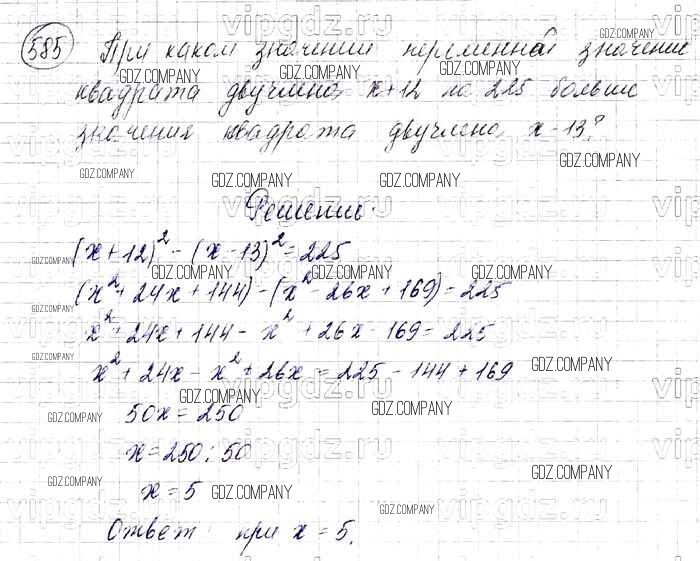 585 При каком значении переменной значение
квадрата двучлена x+12 на 225 больше
значения квадрата двучлена x-13?
Решение.
(x+12)² - (x-13)² = 225
(x² + 24x + 144) - (x² - 26x + 169) = 225
x² + 24x + 144 - x² + 26x - 169 = 225
x² + 24x - x² + 26x = 225 - 144 + 169
50x = 250
x = 250 : 50
x = 5
Ответ: при x = 5.